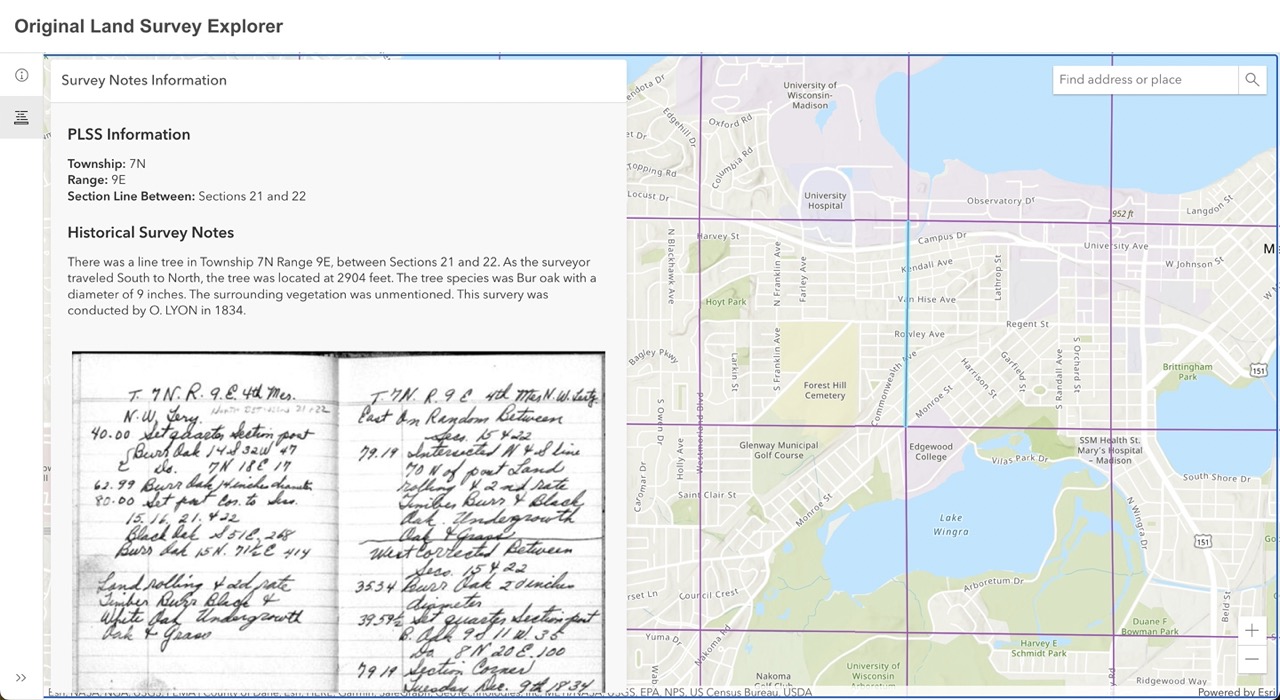 Original Land Survey Explorer
Survey Notes Information
PLSS Information
Township: 7N
Range: 9E
Section Line Between: Sections 21 and 22
Historical Survey Notes
There was a line tree in Township 7N Range 9E, between Sections 21 and 22. As the surveyor
traveled South to North, the tree was located at 2904 feet. The tree species was Bur oak with a
diameter of 9 inches. The surrounding vegetation was unmentioned. This survery was
conducted by O. LYON in 1834.
T. 7N. R. 9.E. 4th Mer.
N.W. Tery.
40.00 Set quarter Section post
Burr Oak 14 S 32 W 47
Do. 7N 18 E 17
62.99 Burr Oak 14 inches diameter
80.00 Set post Cor. to Secs.
15, 16, 21, & 22
Black Oak S 51 E, 268
Burr Oak 15 N. 71½ E 414
Land rolling & 2d rate
Timber Burr Black &
White Oak Undergrowth
Oak & Grass
T. 7N. R 9 E 4th Mer N.W. Terty
East On Random Between
Secs. 15 & 22
79.19 Intersected N & S line
70 N of post Land
rolling & 2nd rate
Timber Burr & Black
Oak. Undergrowth
Oak & Grass
West Corrected Between
Secs. 15 & 22
35.34 Burr Oak 20 inches
diameter
39.59½ Set quarter Section post
B. Oak 9 S 11 W. 35
Do 8 N 20 E. 100
79 19 Section Corner
Tuesday Dec. 9th 1834
Find address or place
endota Dr
University of
Wisconsin-
Madison
Edgehill Dr
Oxford Rd
et Dr
Columbia Rd
Topping Rd
Locust Dr
University
Hospital
Observatory Dr
952 ft
Langdon St
Harvey St
Campus Dr
University Ave
M
N Blackhawk Ave
N Franklin Ave
Farley Ave
Kendall Ave
Lathrop St
W Johnson St
Hoyt Park
Van Hise Ave
Regent St
Rowley Ave
Bagley Pkwy
Larkin St
S Franklin Ave
Forest Hill
Cemetery
Commonwealth Ave
Monroe St
Harrison St
Garfield St
S Randall Ave
S Orchard St
Brittingham
Park
151
S Owen Dr
Holly Ave
Westmorland Blvd
Glenway Municipal
Golf Course
Edgewood
College
Vilas Park Dr
SSM Health St.
Mary's Hospital
- Madison
South Shore Dr
Caromar Dr
Saint Clair St
Monroe St
Lake
Wingra
N Wingra Dr
151
Arboretum Dr
rset Ln
Council Crest
Beld St
Yuma Dr
Nakoma Rd
Duane F
Bowman Park
Harvey E
Schmidt Park
University of
Wisconsin
Nakoma
Golf Club
Ridgewood Way
USGS, EPA, NPS, US Census Bureau, USDA
Powered by Esri